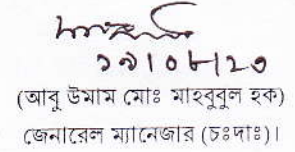 ১৭|০৮|২৩
(আবু উমাম মোঃ মাহবুবুল হক)
জেনারেল ম্যানেজার (চঃদাঃ)।